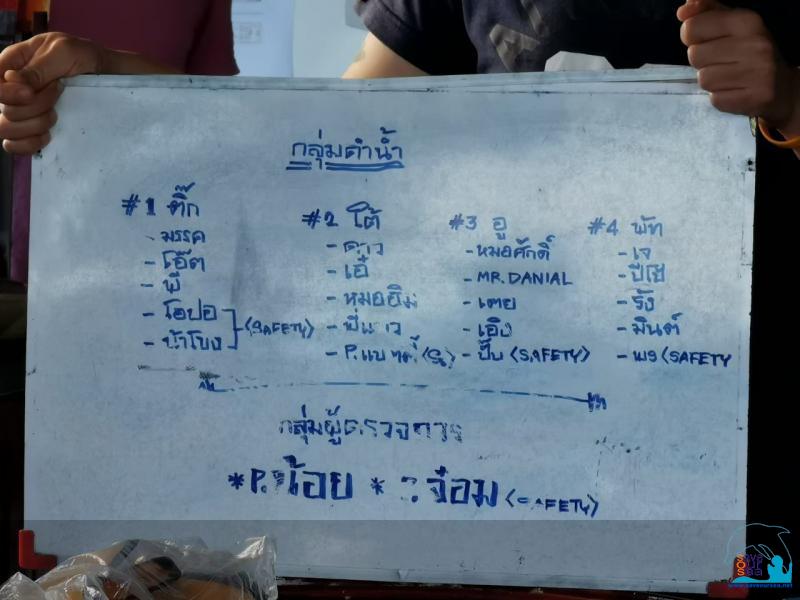 กลุ่มดำน้ำ
#1 ติ๊ก
- มรรค
- โอ๊ต
- พี
- โอปอ
- น้าโบง (SAFETY)
#2 โต้
- ดาว
- เอ๋
- หมออิม
#3 อู
- หมอศักดิ์
- MR. DANIAL
- เตย
- เอิง
- ปั๊บ (SAFETY)
#4 พัท
- เจ
- รัง
- มินต์
- (SAFETY
กลุ่มผู้ตรวจการ
*P.น้อย * จ๋อม (SAFETY)
SOS
www.saveoursea.net